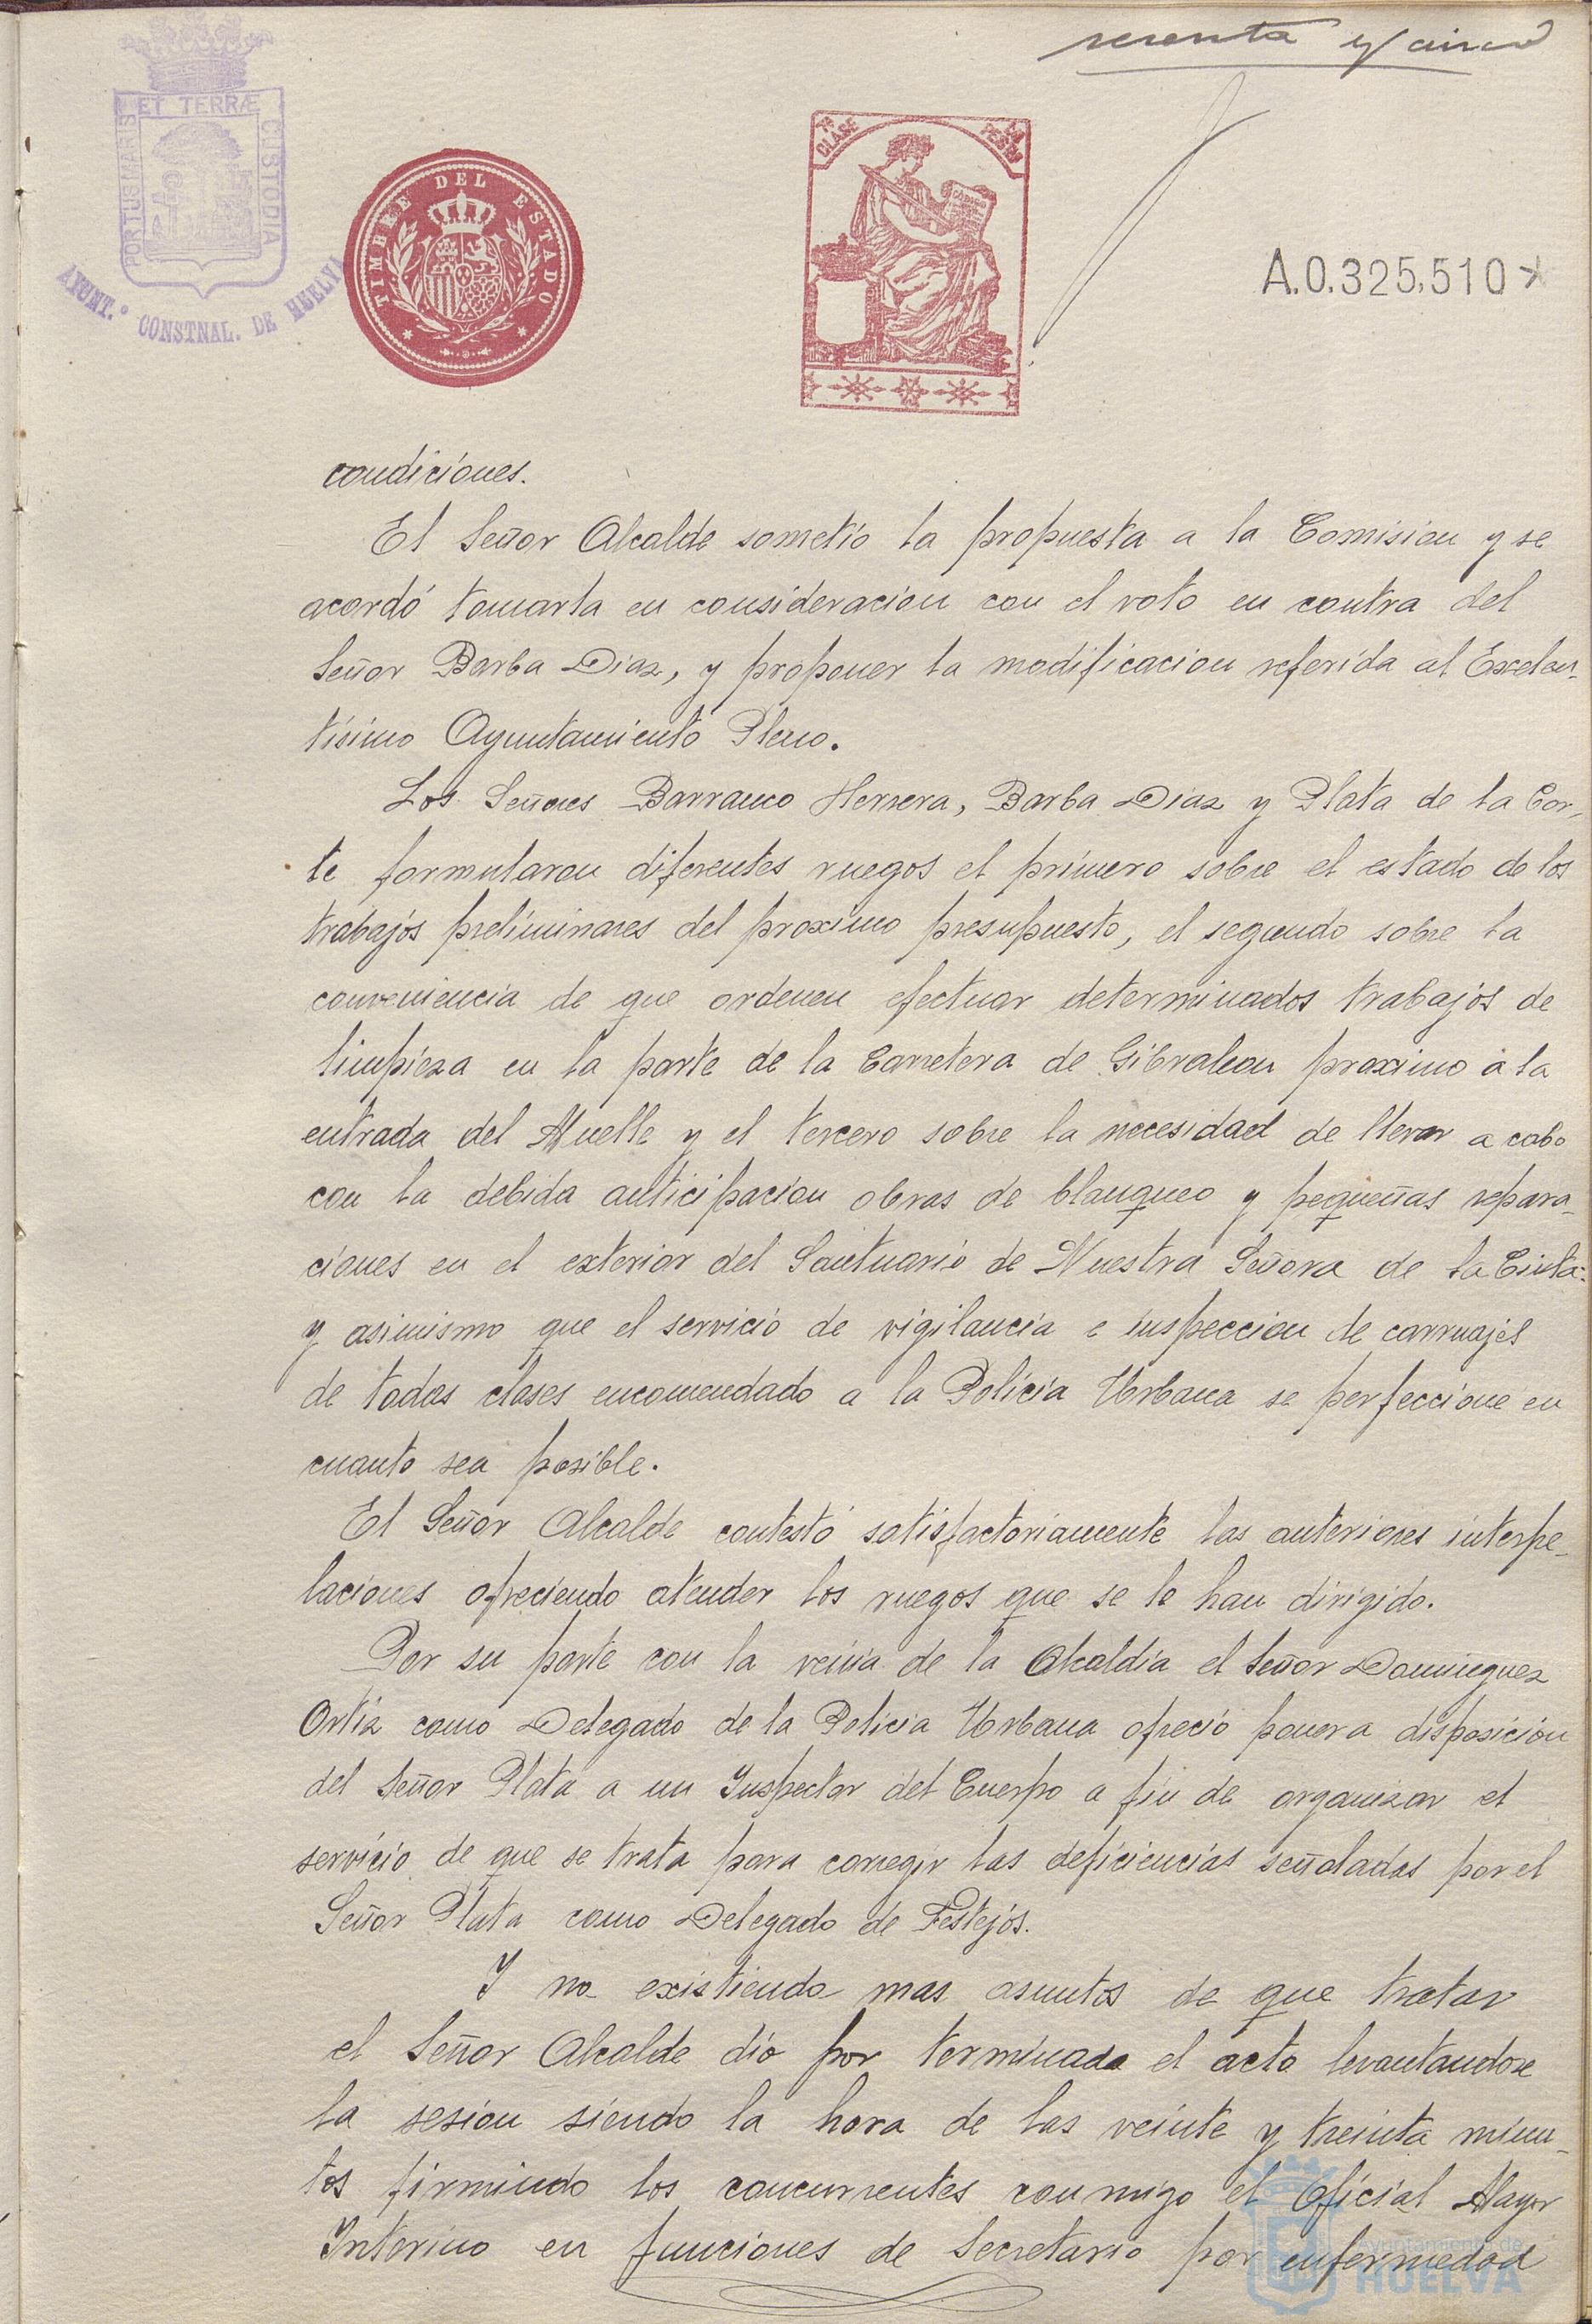 sesenta y cinco
PORTUS MARIS ET TERRÆ CUSTODIA
AYUNT.º CONSTNAL. DE HUELVA
TIMBRE DEL ESTADO
CLASE
A.0.325,510*
condiciones.
El Señor Alcalde sometió la propuesta a la Comision y se
acordó tomarla en consideracion con el voto en contra del
Señor Barba Diaz, y proponer la modificacion referida al Excelen-
tisimo Ayuntamiento Pleno.
Los Señores Barranco Herrera, Barba Diaz y Plata de la Cor-
te formularon diferentes ruegos el primero sobre el estado de los
trabajos preliminares del proximo presupuesto, el segundo sobre la
conveniencia de que ordenen efectuar determinados trabajos de
limpieza en la parte de la Carretera de Gibraleon proximo a la
entrada del Muelle y el tercero sobre la necesidad de llevar a cabo
con la debida anticipacion obras de blanqueo y pequeñas repara-
ciones en el exterior del Santuario de Nuestra Señora de la Cinta:
y asimismo que el servicio de vigilancia e inspeccion de carruajes
de todas clases encomendado a la Policia Urbana se perfeccione en
cuanto sea posible.
El Señor Alcalde contestó satisfactoriamente las anteriores interpe-
laciones ofreciendo atender los ruegos que se le han dirigido.
Por su parte con la venia de la Alcaldia el Señor Dominguez
Ortiz como Delegado de la Policia Urbana ofreció poner a disposición
del Señor Plata a un Inspector del Cuerpo a fin de organizar el
servicio de que se trata para corregir las deficiencias señaladas por el
Señor Plata como Delegado de Festejos.
Y no existiendo mas asuntos de que tratar
el Señor Alcalde dió por terminada el acto levantandose
la sesion siendo la hora de las veinte y treinta minu-
tos firmindo los concurrentes conmigo el Oficial Mayor
Interino en funciones de Secretario por enfermedad
Ayuntamiento de
HUELVA